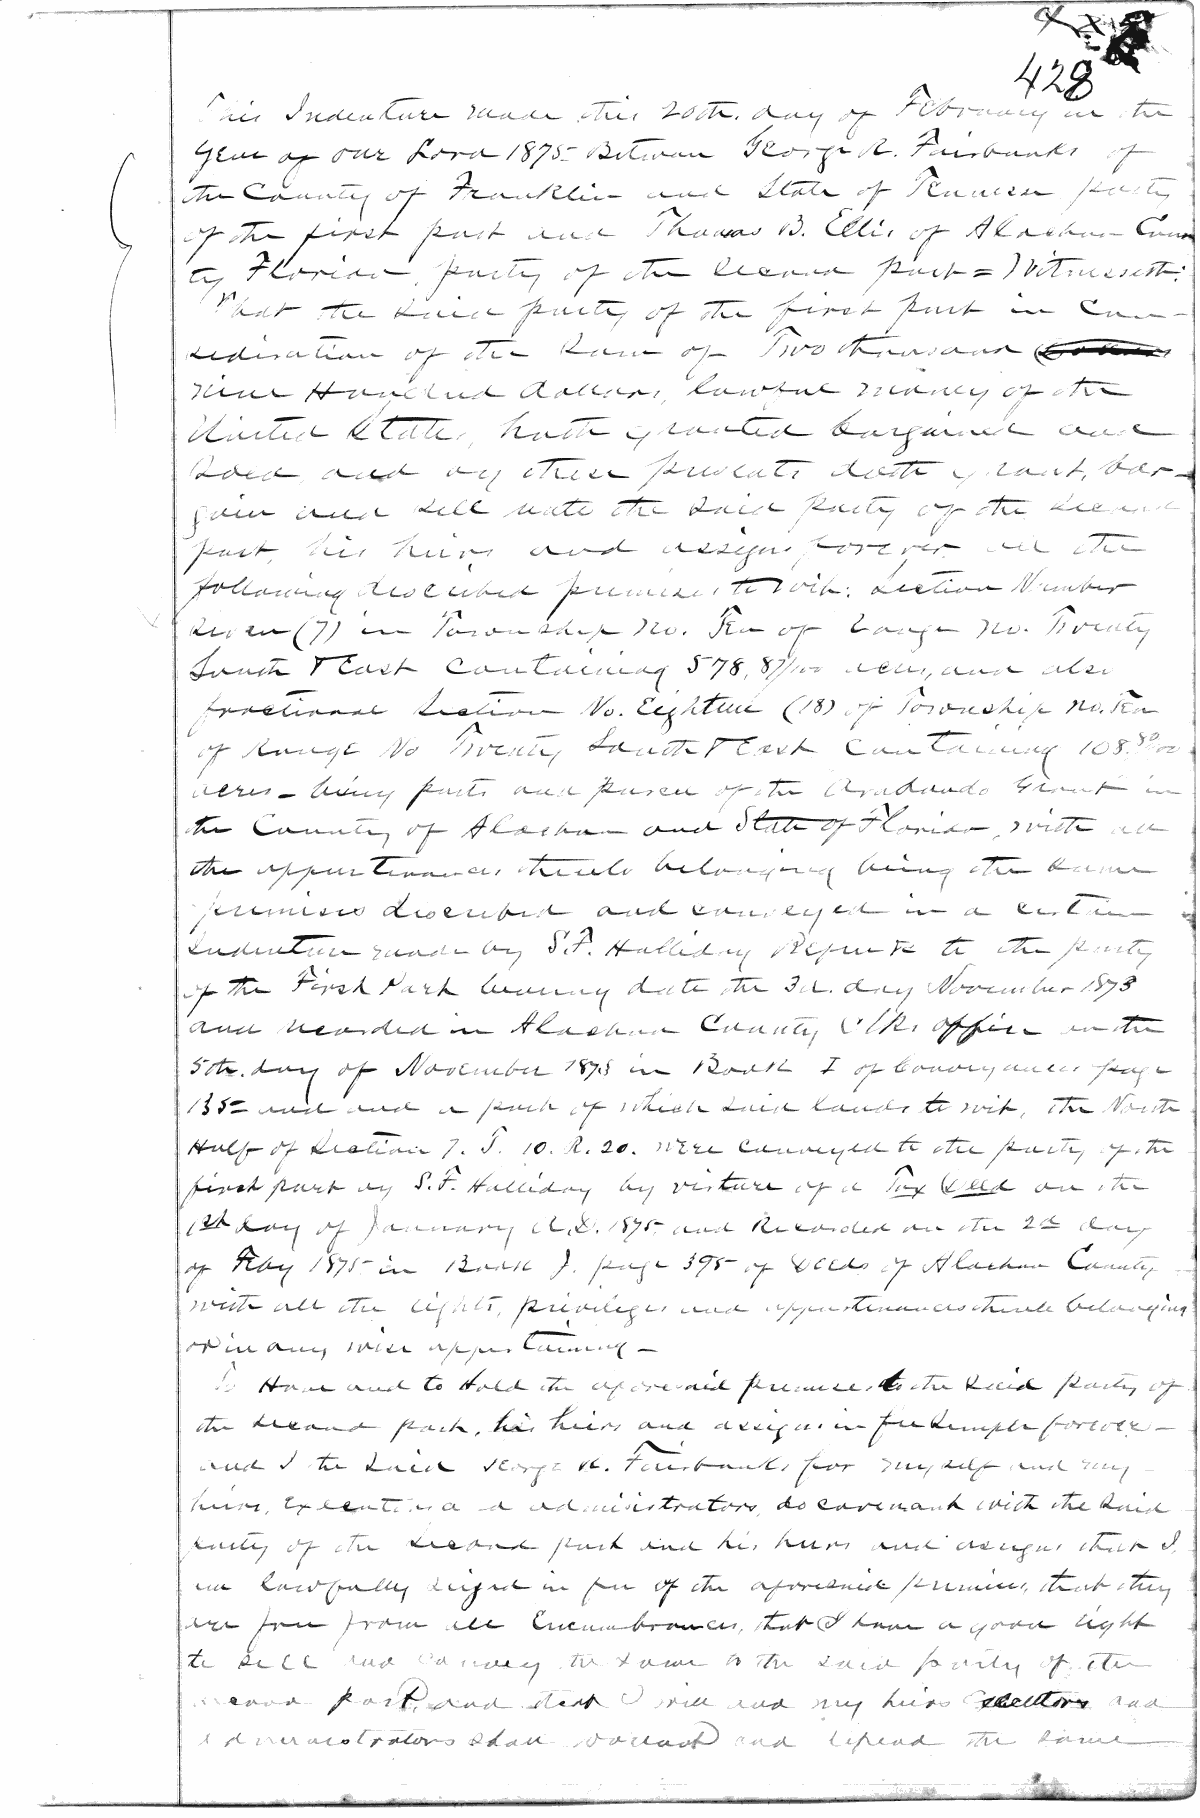 428
This Indenture made this 20th. day of February in the
Year of our Lord 1875 Between George R. Fairbanks of
the County of Franklin and State of Tennessee party
of the first part and Thomas B. Ellis of Alachua Coun
ty Florida, party of the second part = Witnesseth:
That the said party of the first part in con-
sideration of the sum of Two thousand
nine Hundred dollars, lawful money of the
United States, hath granted bargained and
Sold, and by these presents doth grant, bar-
gain and sell unto the said party of the second
part, his heirs and assigns forever all the
following described premises to wit: Section Number
Seven (7) in Township No. Ten of Range No. Twenty
South & East containing 578,87/100 acres, and also
fractional Section No. Eighteen (18) of Township No. Ten
of Range No Twenty South & East containing 108.80/100
acres - being parts and parcel of the Arredondo Grant in
the County of Alachua and State of Florida, with all
the appurtenances thereto belonging being the same
premises described and conveyed in a certain
Indenture made by S.F. Halliday Referee to the party
of the First Part bearing date the 3d. day November 1873
and recorded in Alachua County Clks office on the
5th. day of November 1873 in Book I of Conveyances page
135 and and a part of which said lands to wit, the North
Half of Section 7. T. 10. R. 20. were conveyed to the party of the
first part by S.F. Halliday by virture of a Tax Deed on the
1st day of January A.D. 1875 and Recorded on the 2d day
of Feby 1875 in Book J. page 395 of Deeds of Alachua County
with all the rights, privileges and appurtenances thereto belonging
or in any wise appertaining -
To Have and to Hold the aforesaid premises to the said party of
the second part, his heirs and assigns in fee Simple forever -
and I the said George R. Fairbanks for myself and my
heirs, executors and administrators, do covenant with the said
party of the second part and his heirs and assigns that I
am lawfully seized in fee of the aforesaid premises, that they
are free from all Encumbrances, that I have a good right
to sell and convey the same to the said party of the
second part, and that I will and my heirs executors and
administrators shall warrant and defend the same